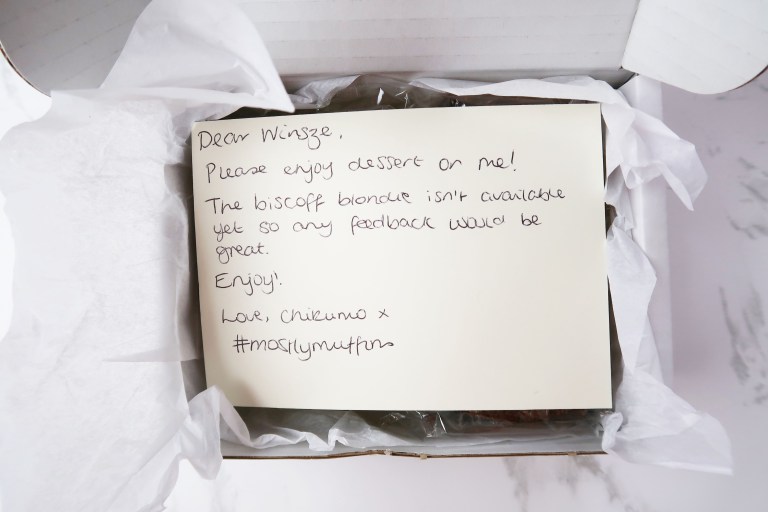 Dear Winsze,
Please enjoy dessert on me!
The biscoff blondie isn't available
yet so any feedback would be
great.
Enjoy!
Love, Chikumo x
#mostlymuffins